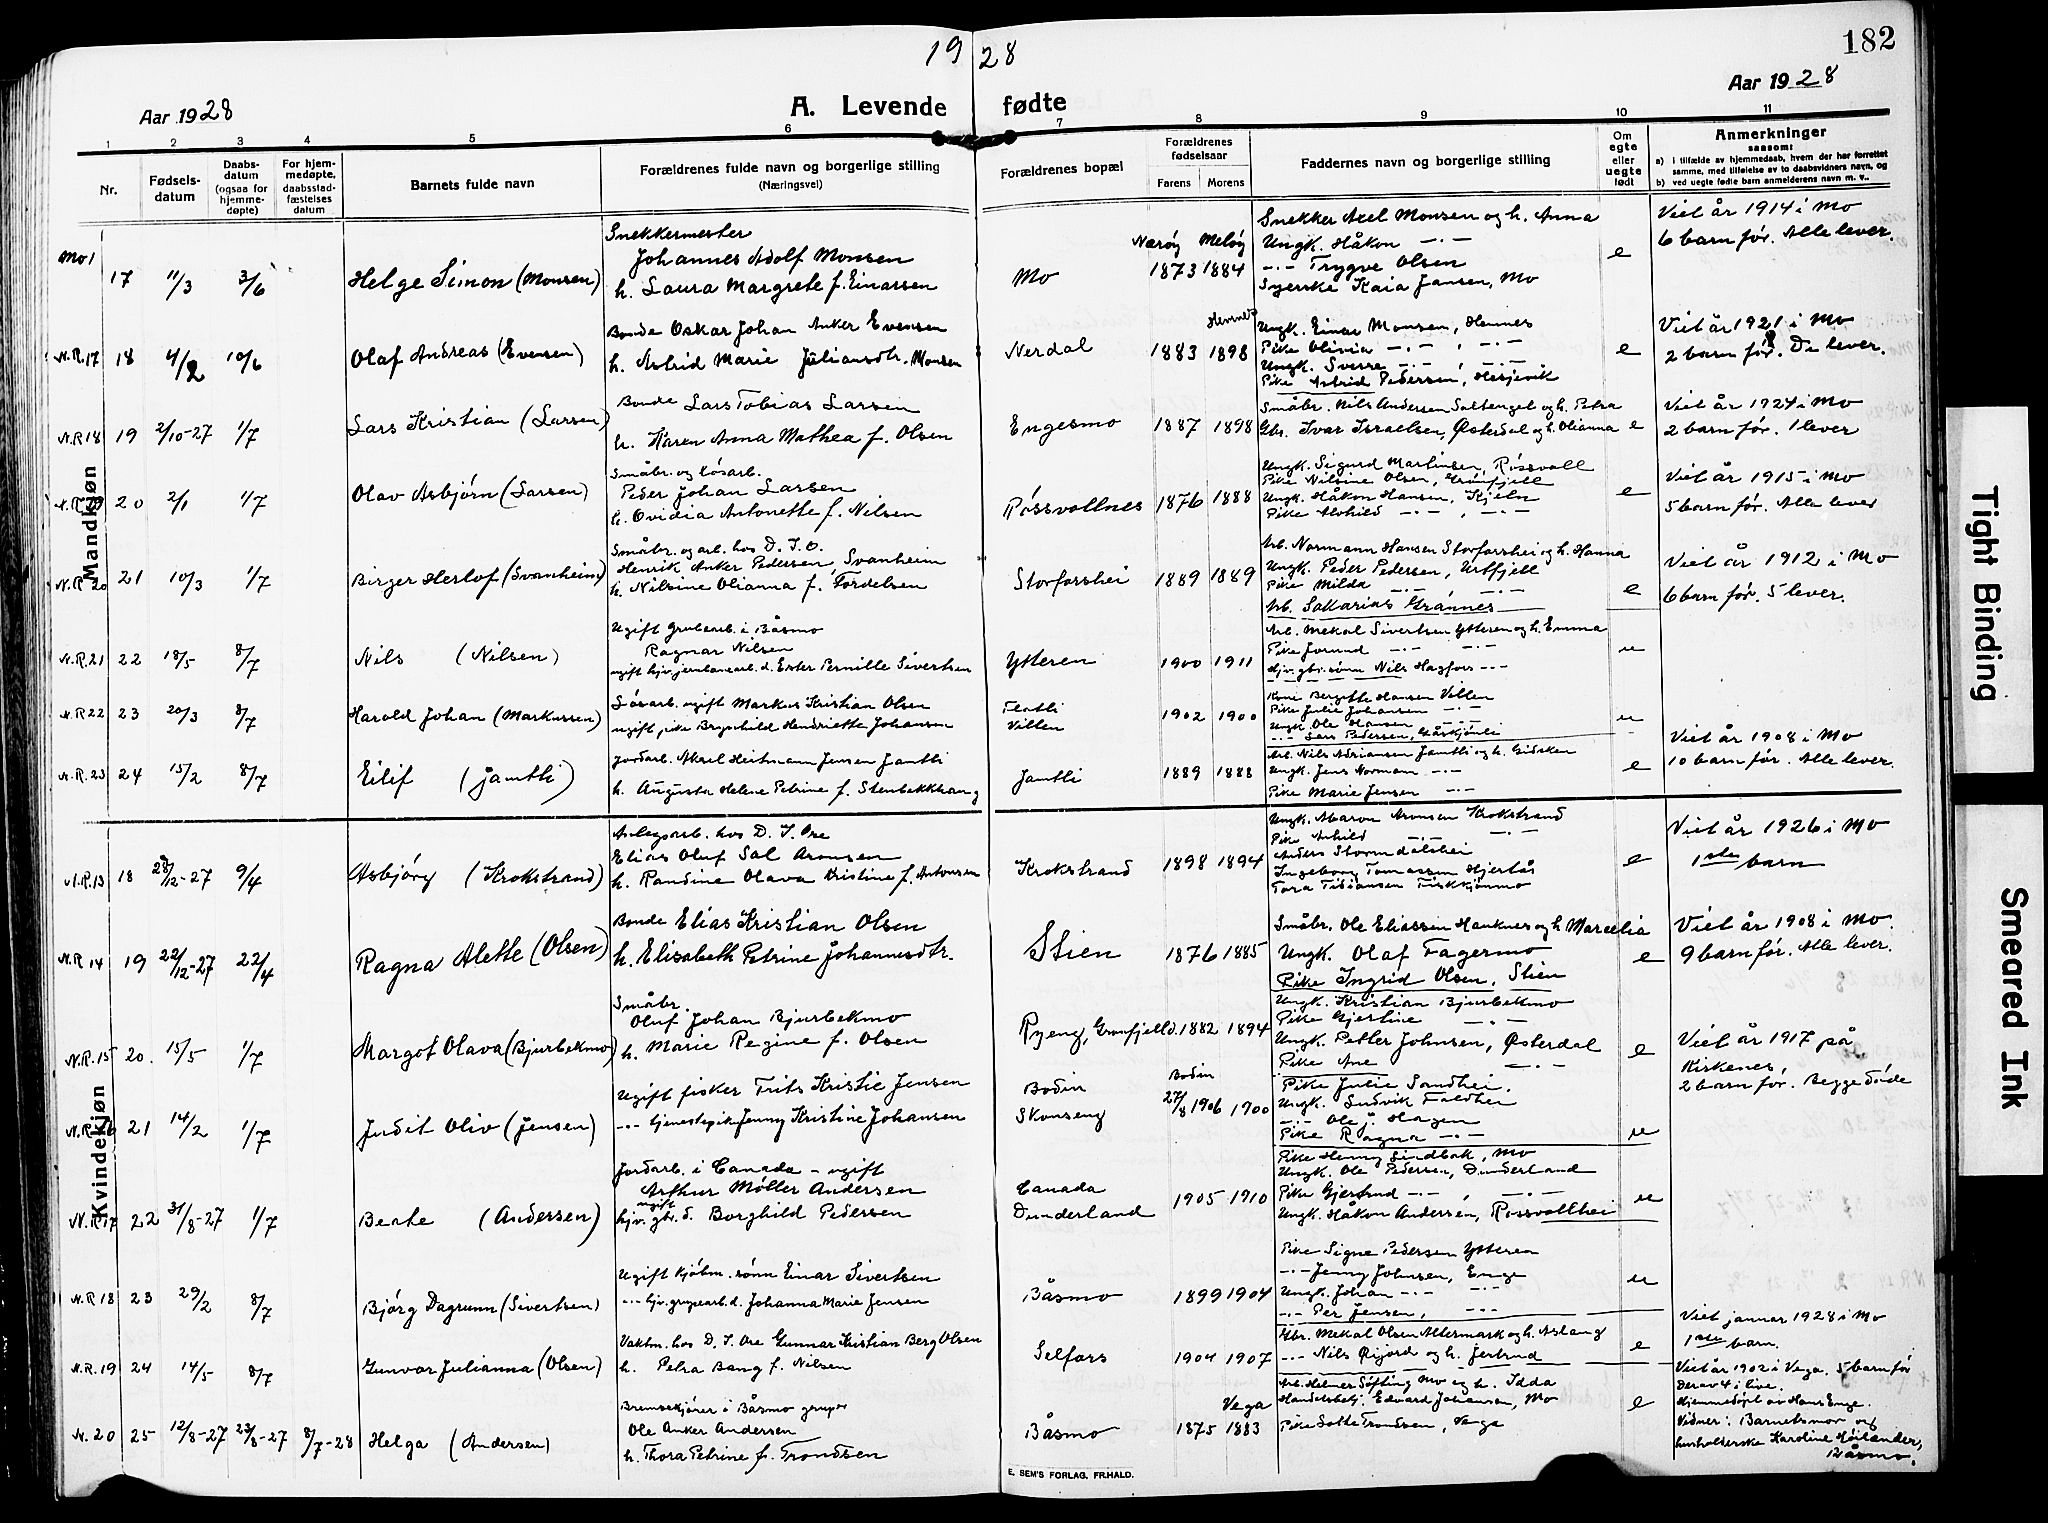 182
19 28
Aar 1928
A. Levende fødte
Aar 1928
1 2 3 4 5 6 7 8 9 10 11
Nr.
Fødsels-
datum
Daabs-
datum
(ogsaa for
hjemme-
døpte)
For hjem-
medøpte,
daabsstad-
fæstelses
datum
Barnets fulde navn
Forældrenes fulde navn og borgerlige stilling
(Næringsvei)
Forældrenes bopæl
Forældrenes
fødselsaar
Farens Morens
Faddernes navn og borgerlige stilling
Om
egte
eller
uegte
født
Anmerkninger
saasom:
a) i tilfælde av hjemmedaab, hvem der har forrettet
samme, med tilføielse av to daabsvidners navn, og
b) ved uegte fødte barn anmelderens navn m. v..
Mandkjøn
17 11/3 3/6 Helge Simon (Monsen)
Snekkermester
Johannes Adolf Monsen
h. Laura Margrete f. Einarsen
Mo
Nærøy Meløy
1873 1884
Snekker Axel Monsen og h. Anna
Ungk. Håkon -"-
-"- Trygve Olsen
Syerske Kaia Jansen, Mo
e
Viet år 1914 i Mo
6 barn før. Alle lever.
N.R.17 18 4/2 10/6 Olaf Andreas (Evensen)
Bonde Oskar Johan Anker Evensen
h. Astrid Marie Juliansdtr. Monsen
Nerdal
Hemnes
1883 1898
Ungk. Einar Monsen, Hemnes
Pike Olivia -"- , -"-
Ungk. Sverre -"- -"-
Pike Astrid Pedersen, Hesjevik
e
Viet år 1921 i Mo
2 barn før. De lever.
N.R 18 19 2/10-27 1/7 Lars Kristian (Larsen)
Bonde Lars Tobias Larsen
h. Karen Anna Mathea f. Olsen
Engesmo
1887 1898
Småbr. Nils Andersen Saltenget og h. Petra
Gbr. Ivar Israelsen, Østerdal og h. Olianna
e
Viet år 1924 i Mo
2 barn før. 1 lever
N.R 19 20 2/1 1/7 Olav Asbjørn (Larsen)
Småbr. og løsarb.
Peder Johan Larsen
h. Ovidia Antonette f. Nilsen
Røssvollnes
1876 1888
Ungk. Sigurd Martinsen, Røssvoll
Pike Nilsine Olsen, Grønfjell
Ungk. Håkon Hansen,
Pike Alvhild -"- , -"-
e
Viet år 1915 i Mo
5 barn før. Alle lever
N.R 20 21 10/3 1/7 Birger Herlof (Svanheim)
Småbr. og arb. hos D. I. O.
Henrik Anker Pedersen, Svanheim
h. Nilsine Olianna f. Tordelsen
Storforshei
1889 1889
Arb. Normann Hansen Storforshei og h. Hanna
Ungk. Peder Pedersen, Urtfjell
Pike Milda -"- -"-
Arb. Sakarias Grønnes
e
Viet år 1912 i Mo
6 barn før. 5 lever.
N.R.21 22 18/5 8/7 Nils (Nilsen)
Ugift grubearb. i Båsmo
Ragnar Nilsen
ugift hjv. jernbanearb. d. Ester Pernille Sivertsen
Ytteren
1900 1911
Arb. Mekal Sivertsen Ytteren og h. Emma
Pike Jorund -"- -"-
Hjv. gbr. sønn Nils Hagfors -"-
u
N.R 22 23 20/3 8/7 Harald Johan (Markussen)
Løsarb. ugift Markus Kristian Olsen
ugift pike Brynhild Hendriette Johansen
Villen
1902 1900
Kone Bergitte Hansen Villen
Pike Julie Johansen -"-
Ungk Ole Hansen -"-
-"- Lars Pedersen,
u
N.R.23 24 15/2 8/7 Eilif (Jamtli)
Jordarb. Aksel Heitmann Jensen Jamtli
h. Augusta Helene Petrine f. Stenbekkhaug
Jamtli
1889 1888
Arb. Nils Adriansen Jamtli og h. Gidsken
Ungk. Jens Normann -"-
Pike Marie Jensen -"-
e
Viet år 1908 i Mo
10 barn før. Alle lever.
Kvindekjøn
N.R.13 18 28/12-27 9/4 Asbjørg (Krokstrand)
Anlegsarb. hos D. I. Ore
Elias Oluf Sal Aronsen
h. Randine Olava Kristine f. Antonsen
Krokstrand
1898 1894
Ungk. Maron Aronsen Krokstrand
Pike Arhild -"- -"-
Anders Stormdalshei
Ingeborg Tomassen Hjertås
Tora Tibiansen Fiskkjønmo
e
Viet år 1926 i Mo
1ste barn
N.R 14 19 22/12-27 22/4 Ragna Alette (Olsen)
Bonde Elias Kristian Olsen
h. Elisabeth Petrine Johannesdtr.
Stien
1876 1885
Småbr. Ole Eliassen Hauknes og h. Marcelia
Ungk. Olaf Fagermo
Pike Ingrid Olsen, Stien
e
Viet år 1908 i Mo.
9 barn før. Alle lever.
N.R.15 20. 15/5 1/7 Margot Olava (Bjurbekmo)
Småbr.
Oluf Johan Bjurbekmo
h. Marie Regine f. Olsen
Ryeng, Grønfjelld.
1882 1894
Ungk. Kristian Bjurbekmo
Pike Gjertine -"-
Ungk. Petter Johnsen, Østerdal
Pike Ane -"- -"-
e
Viet år 1917 på
Kirkenes,
2 barn før. Begge døde
N.R.16 21 14/2 1/7 Judit Oliv (Jensen)
Ugift fisker Frits Kristie Jensen
-"- tjenestepike Jenny Kristine Johansen
Bodin
Skonseng
Bodin
27/8 1906 1900
Pike Julie Sandhei.
Ungk. Ludvik Foldhei
-"- Ole J. Hagen
Pike Ragna -"-
u
N.R 17 22 31/8-27 1/7 Berte (Andersen)
Jordarb. i Canada - ugift
Arthur Møller Andersen
ugift
hjv. gbr. d. Borghild Pedersen
Canada
Dunderland
1905 1910
Pike Henny Lindbak, Mo
Ungk. Ole Pedersen, Dunderland
Pike Gjertrud -"- , -"-
Ungk. Håkon Andersen, Røssvollhei
u
N.R 18 23 29/2 8/7 Bjørg Dagrunn (Sivertsen)
Ugift kjøbm. sønn Einar Sivertsen
-"- hjv. grubearb. d. Johanna Marie Jensen
Båsmo
1899 1904
Pike Signe Pedersen Ytteren
-"- Jenny Johnsen, Enge
Ungk. Johan -"- -"-
-"- Per Jensen, -"-
u
N.R.19 24 14/5 8/7 Gunvor Julianna (Olsen)
Vaktm. hos D. I. Ore Gunnar Kristian Berg Olsen
h. Petra Bang f. Nilsen
Selfors
1904 1907
Gbr. Mekal Olsen Altermark og h. Aslaug
-"- Nils Øijord og h. Jertrud
e
Viet januar 1928 i Mo
1ste barn.
N. 20 25 12/8-27 23/8-27 8/7-28 Helga (Andersen)
Bremsekjører i Båsmo gruper
Ole Anker Andersen
h. Thora Petrine f. Trondsen
Båsmo
Vega
1875 1883
Arb. Helmer Søfting Mo og h. Idda
Handelsbetj. Edvard Johansen, Mo
Pike Lotte Trondsen, Vega
e
Viet år 1902 i Vega. 5 barn før
Derav 4 i live.
Hjemmedøpt av Hans Enge.
Vidner: Barnets mor og
husholderske Karoline Høilander,
Båsmo.
E. SEM'S FORLAG, FR.HALD.
Tight Binding
Smeared Ink